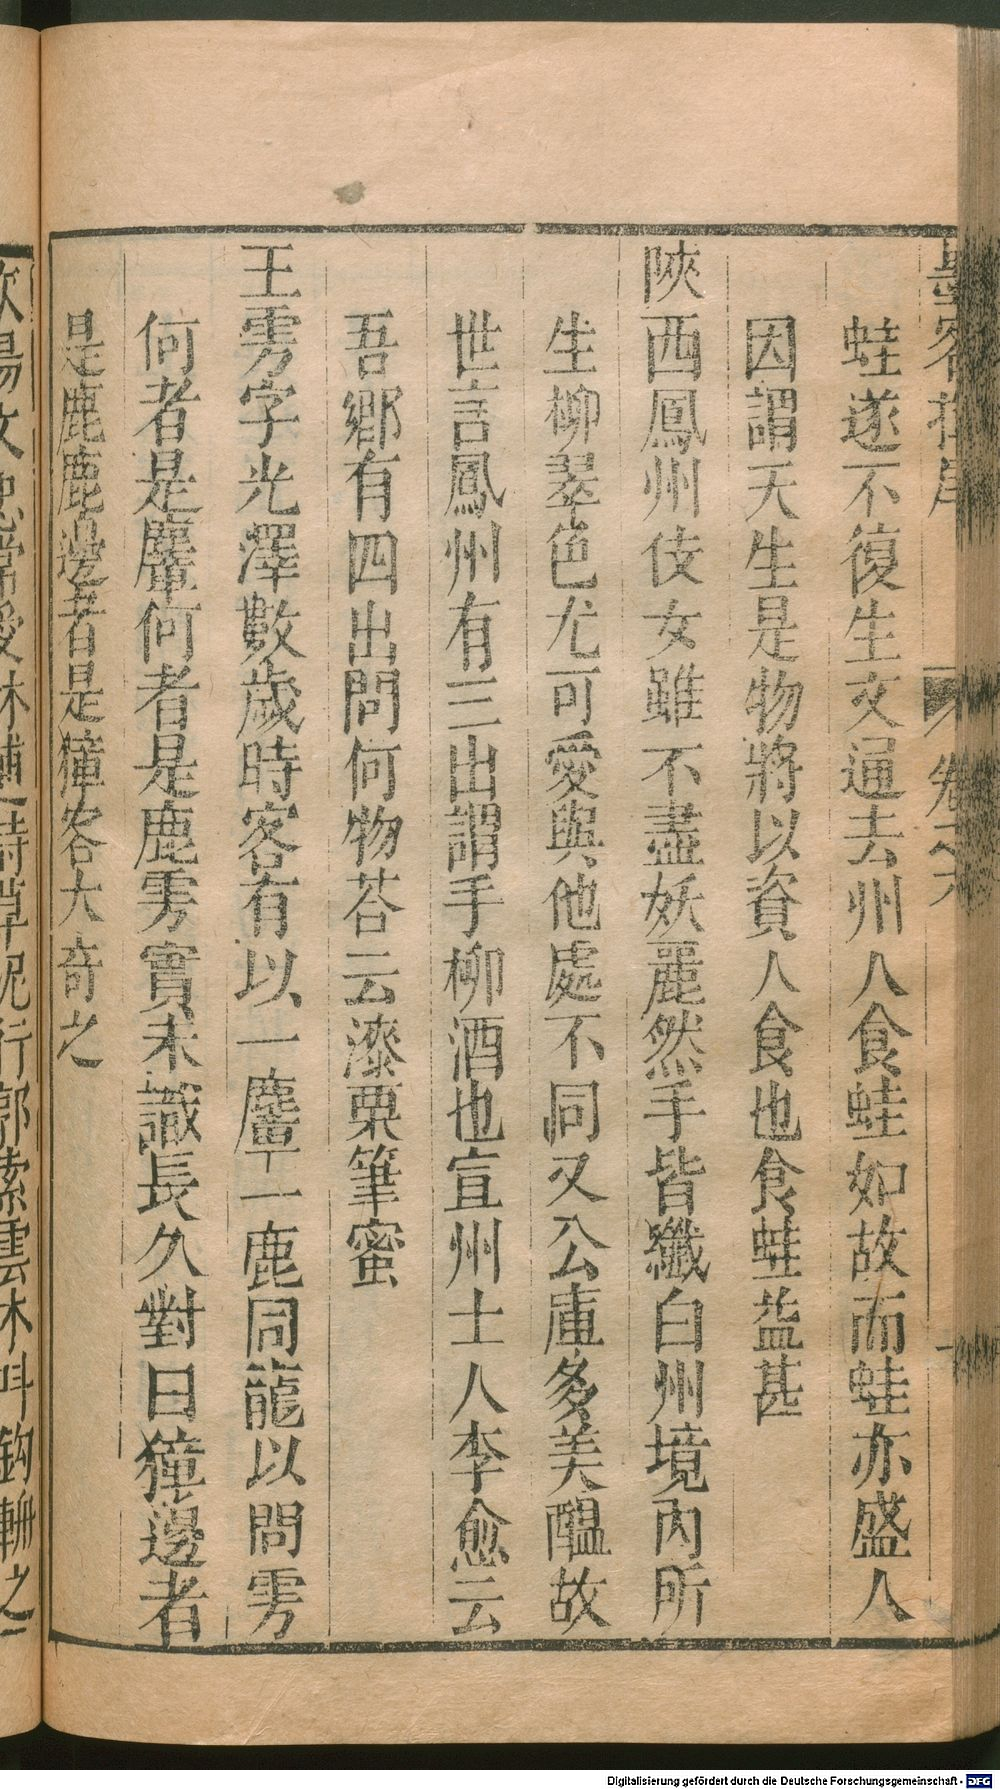 墨客揮犀 卷之六
蛙遂不復生文通去州人食蛙如故而蛙亦盛人
因謂天生是物將以資人食也食蛙益甚
陝西鳳州伎女雖不盡妖麗然手皆纖白州境內所
生柳翠色尤可愛與他處不同又公庫多美醞故
世言鳳州有三出謂手柳酒也宣州士人李愈云
吾鄉有四出問何物荅云漆栗筆蜜
王雱字光澤數歲時客有以一麞一鹿同籠以問雱
何者是麞何者是鹿雱實未識良久對曰獐邊者
是鹿鹿邊者是獐客大奇之
Digitalisierung gefördert durch die Deutsche Forschungsgemeinschaft - DFG